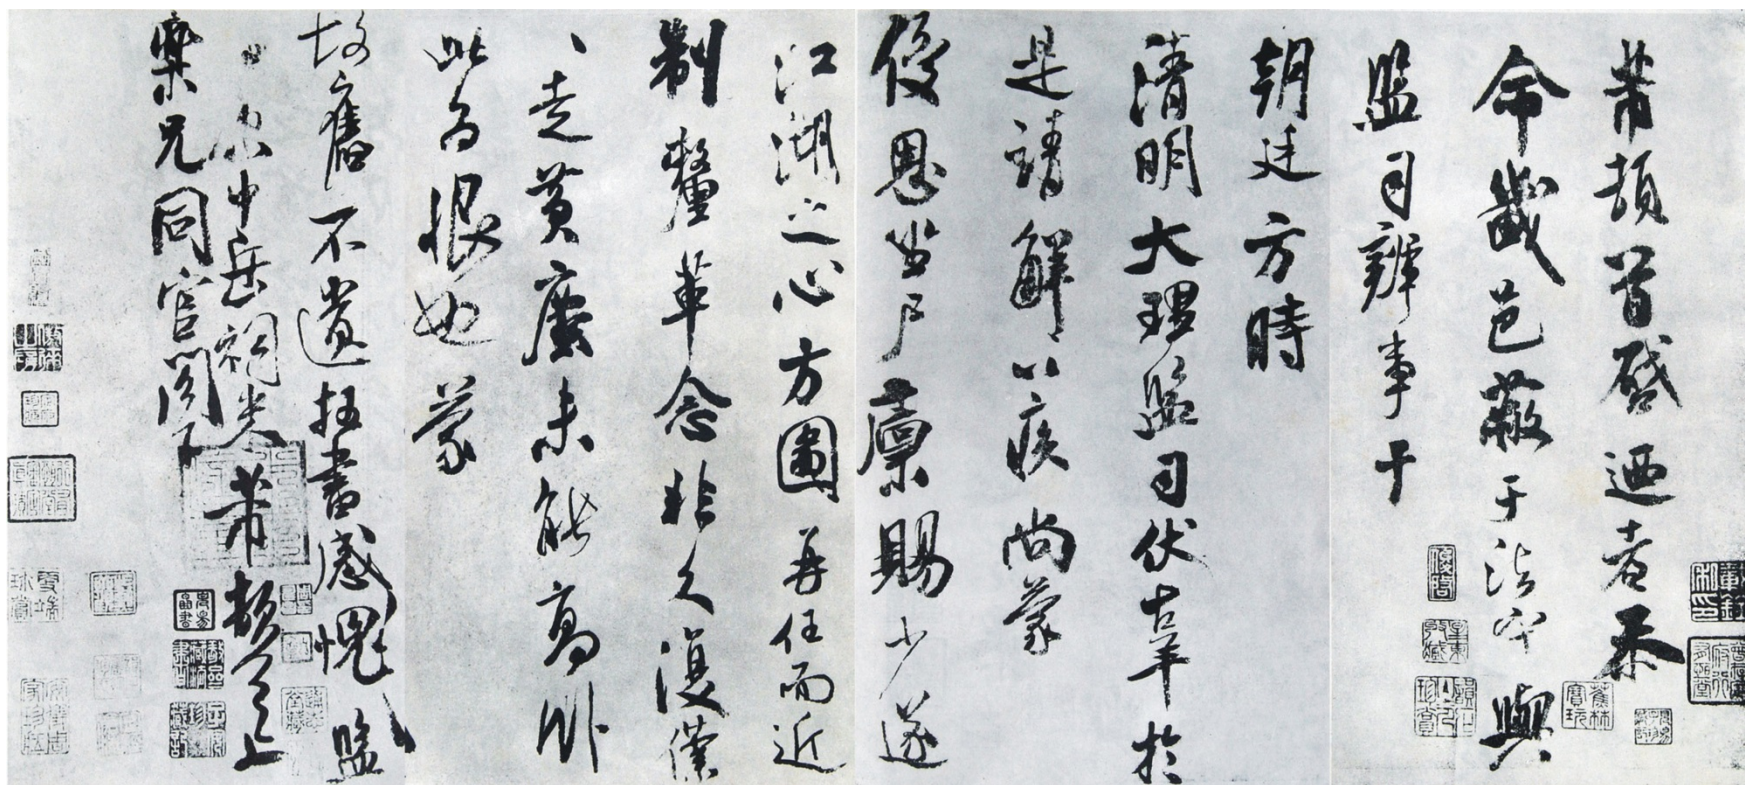 芾頓首啓迺者忝
命畿邑蔽于法守與
監司辨事于
朝廷方時
清明大理監司伏辜於
是請解以疾尚蒙
優恩當尸廩賜少遂
江湖之心方圖再任而近
制釐革念非久復僕
、走黃塵未能高臥
此為恨也蒙
故舊不遺枉書感愧 監
中岳祠米芾頓首上
樂兄同官閣下